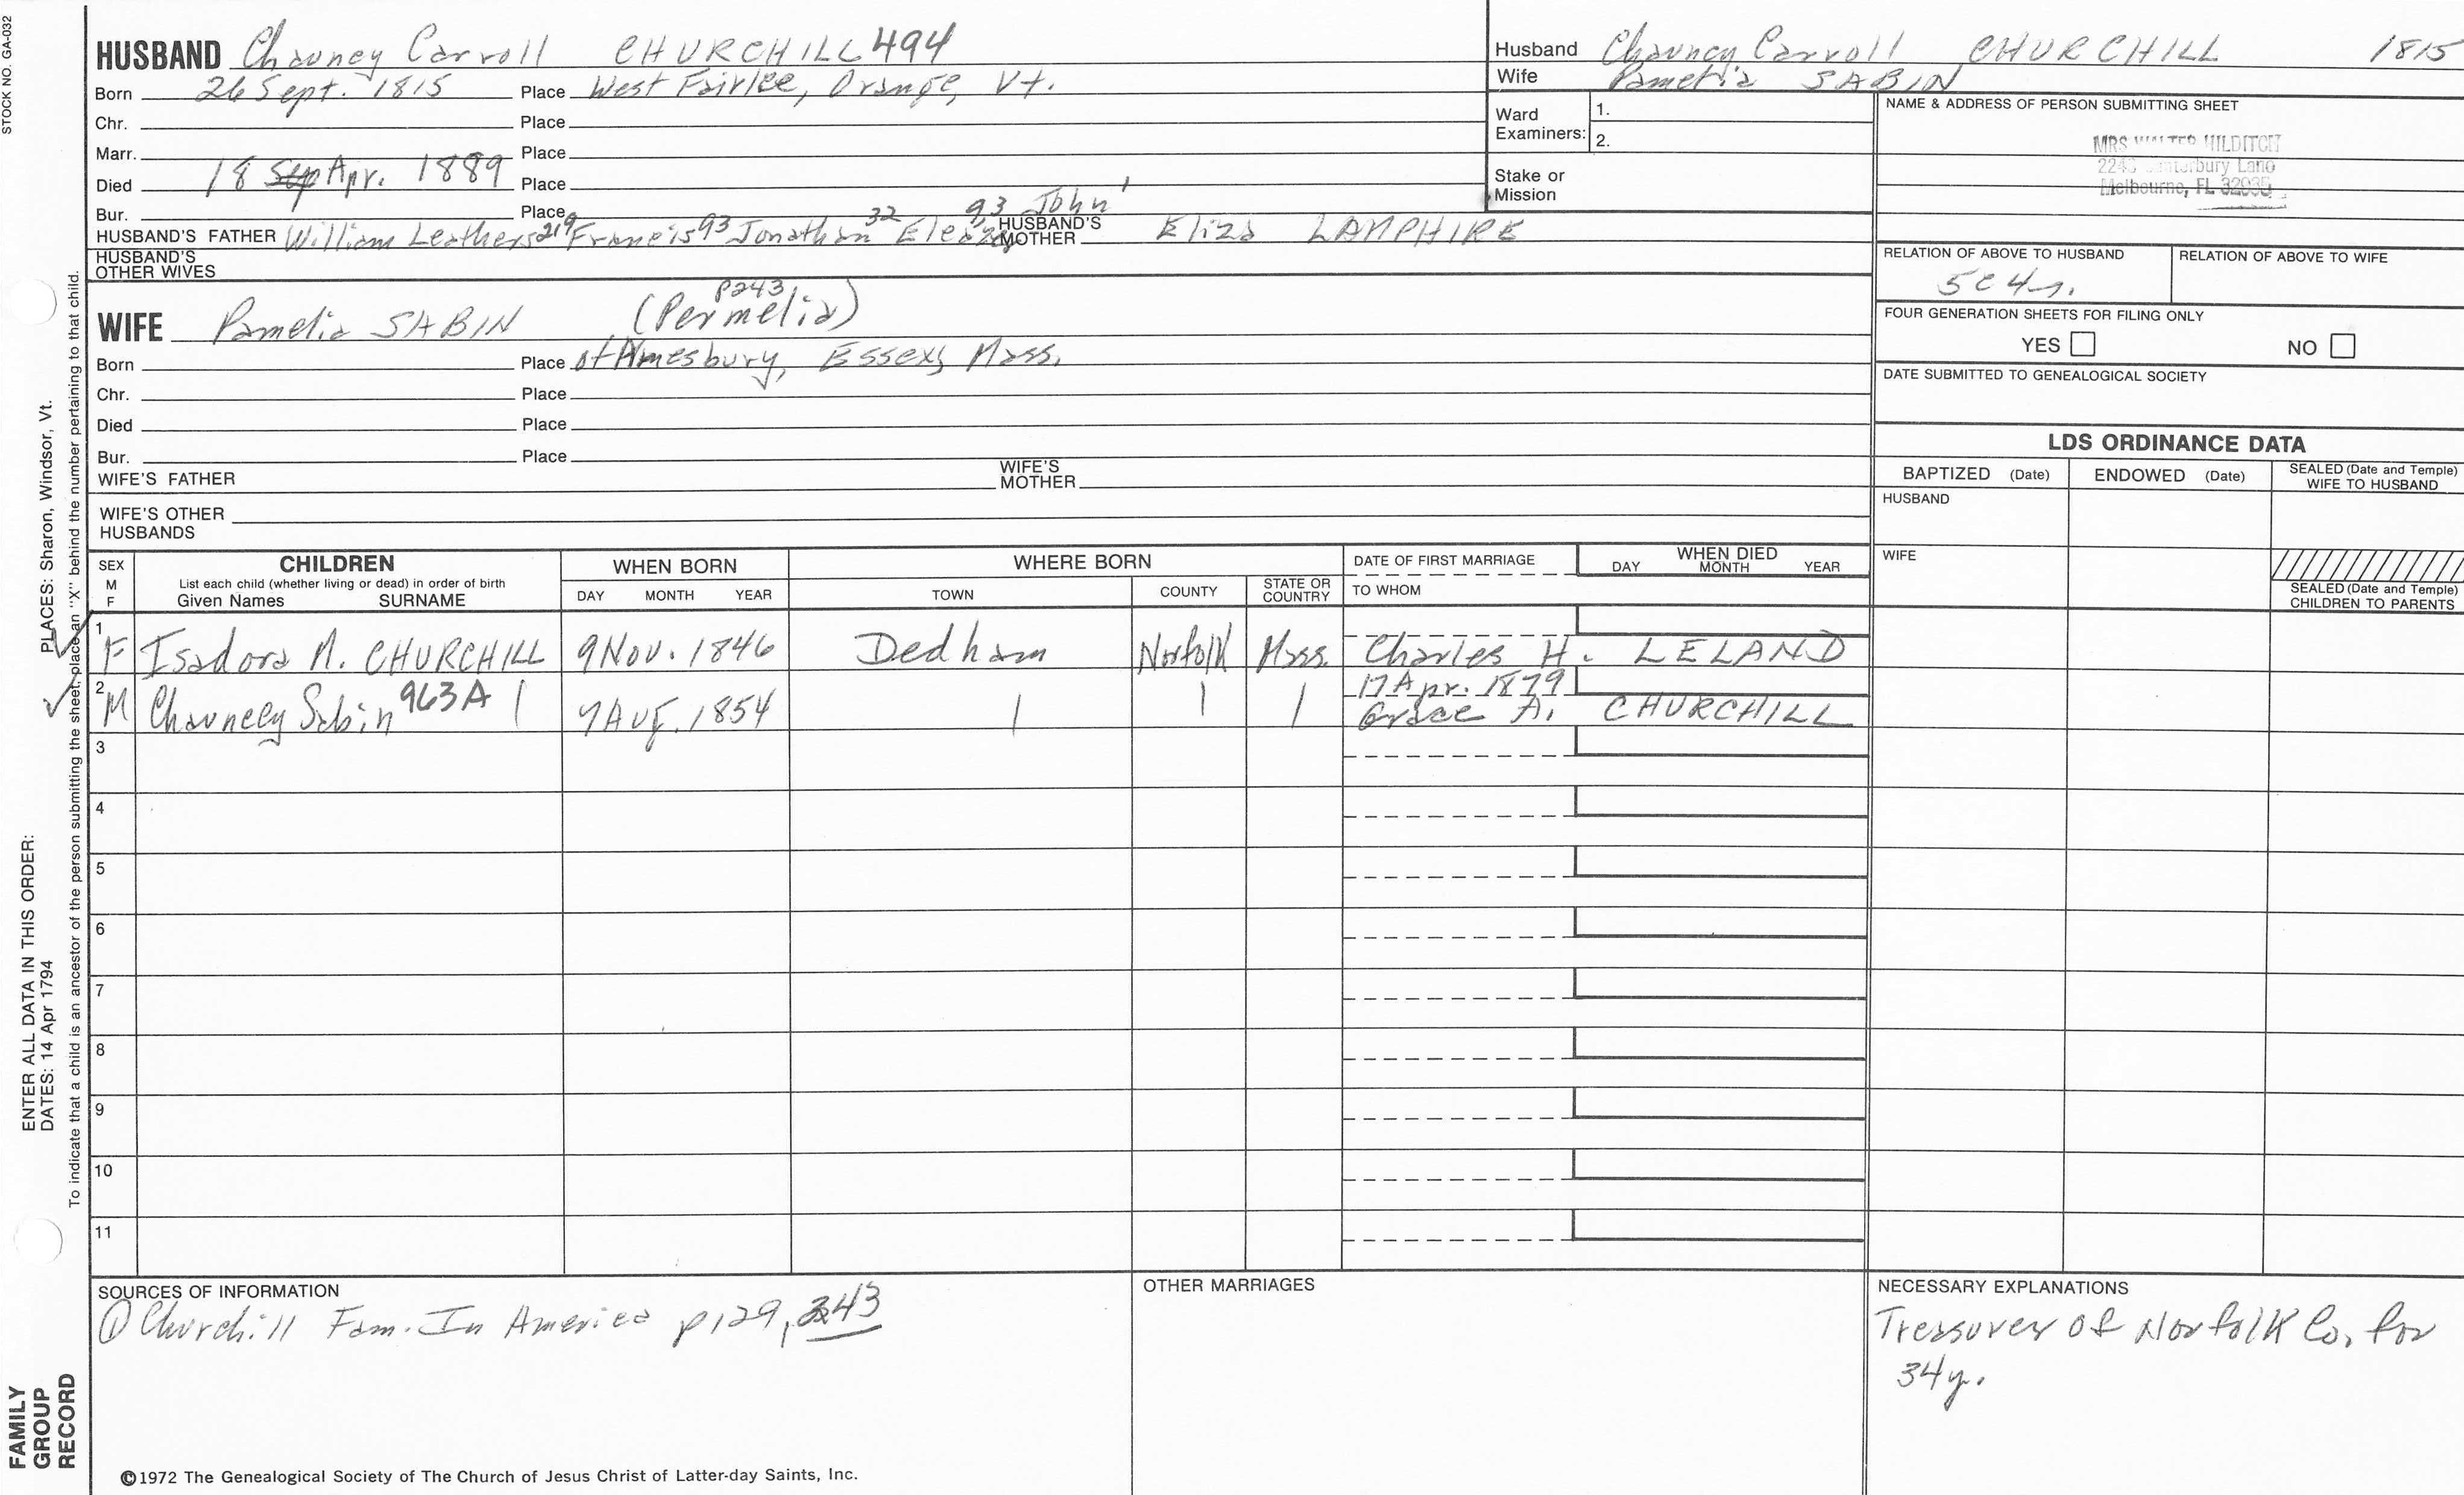 STOCK NO. GA-032
HUSBAND Chauncy Carroll CHURCHILL 494
Born 26 Sept. 1815 Place West Fairlee, Orange, Vt.
Chr. Place
Marr. Place
Died 18 Sep Apr. 1889 Place
Bur. Place
HUSBAND'S FATHER William Leathers 219 Francis 93 Jonathan 32 Eleazer 93 John 1 HUSBAND'S MOTHER Eliza LAMPHIRE
HUSBAND'S OTHER WIVES
WIFE Pamelia SABIN (Permelia) p243
Born Place of Amesbury, Essex, Mass.
Chr. Place
Died Place
Bur. Place
WIFE'S FATHER WIFE'S MOTHER
WIFE'S OTHER HUSBANDS
Husband Chauncy Carroll CHURCHILL 1815
Wife Pamelia SABIN
Ward Examiners: 1.
2.
Stake or Mission
NAME & ADDRESS OF PERSON SUBMITTING SHEET
MRS WALTER HILDITCH
Lane
Melbourne, FL
RELATION OF ABOVE TO HUSBAND
5C4r.
RELATION OF ABOVE TO WIFE
FOUR GENERATION SHEETS FOR FILING ONLY
YES NO
DATE SUBMITTED TO GENEALOGICAL SOCIETY
LDS ORDINANCE DATA
BAPTIZED (Date) ENDOWED (Date) SEALED (Date and Temple) WIFE TO HUSBAND
HUSBAND
WIFE
SEALED (Date and Temple) CHILDREN TO PARENTS
SEX M F
CHILDREN
List each child (whether living or dead) in order of birth
Given Names SURNAME
WHEN BORN
DAY MONTH YEAR
WHERE BORN
TOWN COUNTY STATE OR COUNTRY
DATE OF FIRST MARRIAGE
TO WHOM
WHEN DIED
DAY MONTH YEAR
1 F Isadora M. CHURCHILL 9 Nov. 1846 Dedham Norfolk Mass. Charles H. LELAND
2 M Chauncey Sabin 963A | 7 Aug. 1854 | | | 17 Apr. 1879
Grace A. CHURCHILL
3
4
5
6
7
8
9
10
11
SOURCES OF INFORMATION
① Churchill Fam. In America p129, 243
OTHER MARRIAGES
NECESSARY EXPLANATIONS
Treasurer of Norfolk Co. for
34y.
©1972 The Genealogical Society of The Church of Jesus Christ of Latter-day Saints, Inc.
FAMILY
GROUP
RECORD
ENTER ALL DATA IN THIS ORDER:
DATES: 14 Apr 1794
PLACES: Sharon, Windsor, Vt.
To indicate that a child is an ancestor of the person submitting the sheet, place an "X" behind the number pertaining to that child.